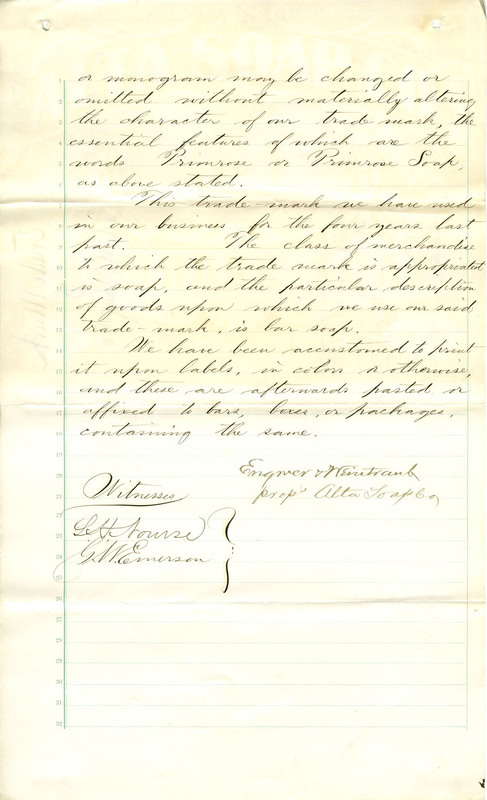 or monogram may be changed or
omitted without materially altering
the character of our trade mark, the
essential features of which are the
words Primrose or Primrose Soap,
as above stated.
This trade-mark we have used
in our business for the four years last
past. The class of merchandise
to which the trade mark is appropriated
is soap, and the particular description
of goods upon which we use our said
trade-mark, is bar soap.
We have been accustomed to print
it upon labels, in colors or otherwise,
and these are afterwards pasted or
affixed to bars, boxes, or packages,
containing the same.
Engwer & Weintraub
props Alta Soap Co
Witnesses
G.H. Nourse
G.W. Emerson